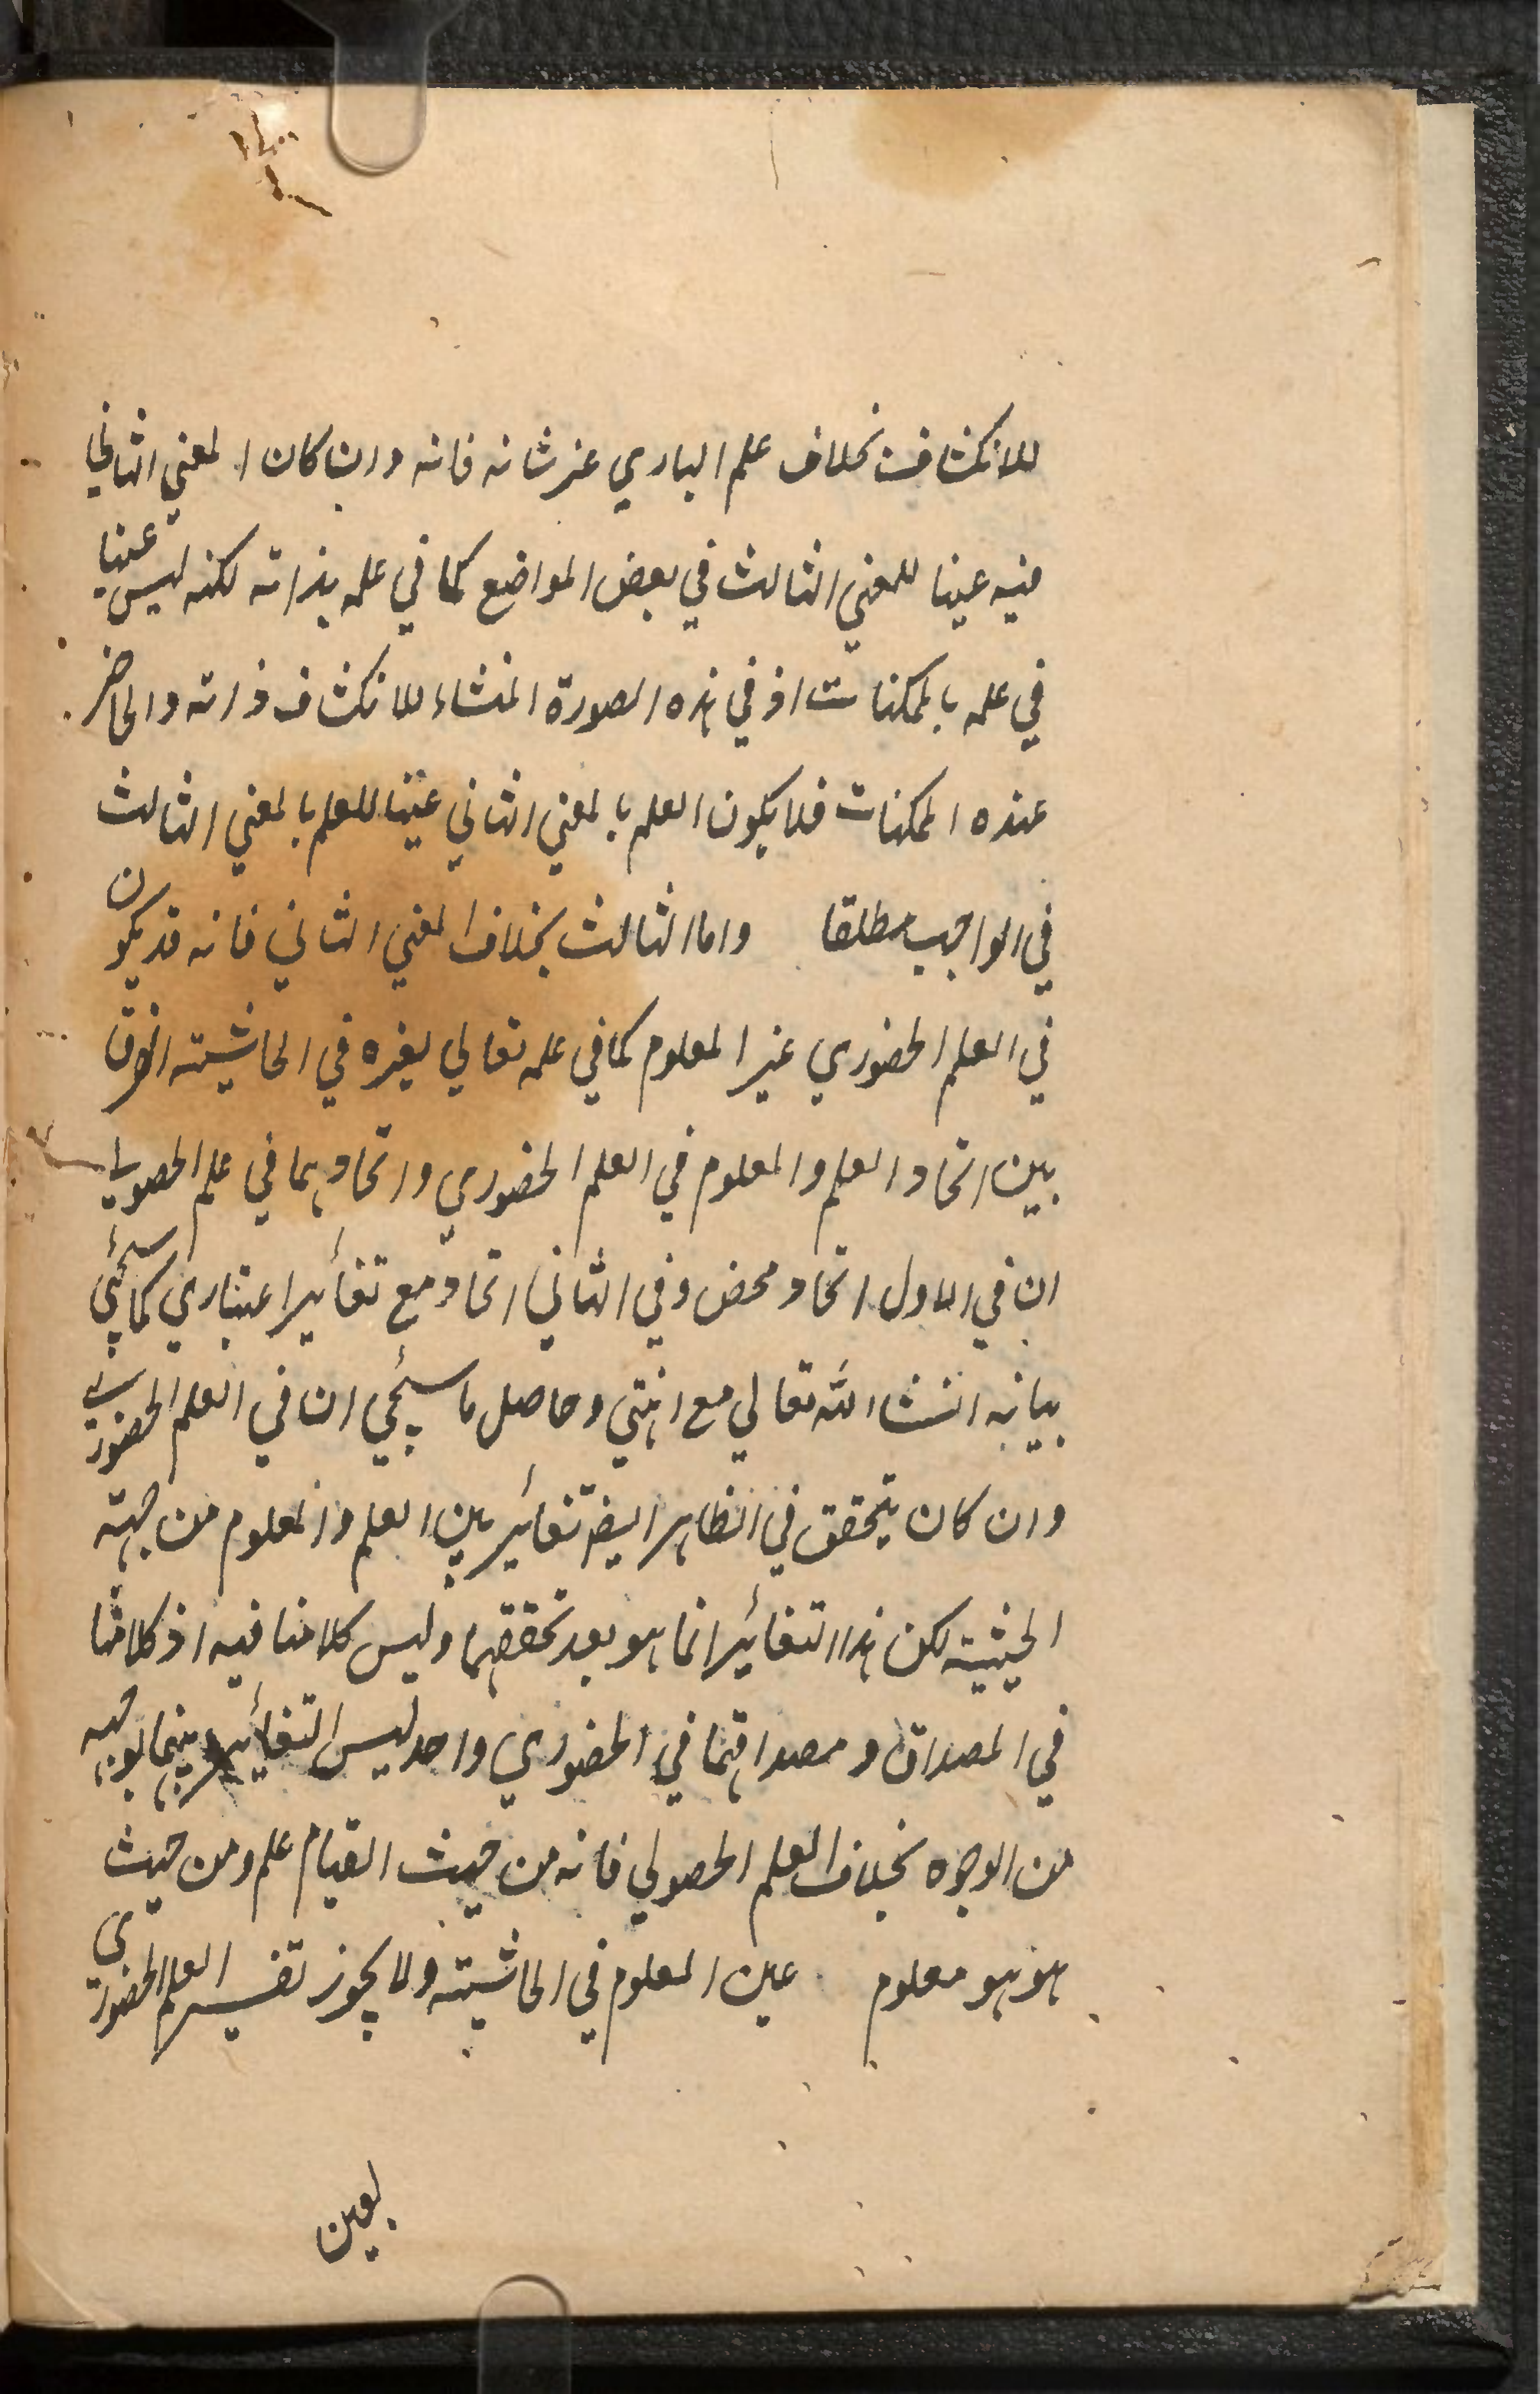 للانكشاف بخلاف علم الباري عز شانه فانه وان كان المعني الثاني
فيه عينا للمعني الثالث في بعض المواضع كما في علمه بذاته لكنه ليس عينا
في علمه بالممكنات اذ في هذه الصورة المنشاء للانكشاف ذاته والحاضر
عنده الممكنات فلا يكون العلم بالمعني الثاني عينا للعلم بالمعني الثالث
في الواجب مطلقا واما الثالث بخلاف المعني الثاني فانه قد يكون
في العلم الحضوري غير المعلوم كما في علمه تعالي بغيره في الحاشيته الفرق
بين اتحاد العلم والمعلوم في العلم الحضوري واتحادهما في علم الحصولي
ان في الاول اتحاد محض وفي الثاني اتحاد مع تغاير اعتباري كما سيجئ
بيانه انشاء الله تعالي مع انتهي وحاصل ما سيجئ ان في العلم الحضوري
وان كان يتحقق في الظاهر ايضا تغائر بين العلم والمعلوم من جهته
الحيثية لكن هذا التغائر انما هو بعد تحققهما وليس كلامنا فيه اذ كلامنا
في المصداق ومصداقهما في الحضوري واحد ليس التغائر بينهما بوجه
من الوجوه بخلاف العلم الحصولي فانه من حيث القيام علم ومن حيث
هو هو معلوم عين المعلوم في الحاشيته ولا يجوز تفسير العلم الحضوري
بعين